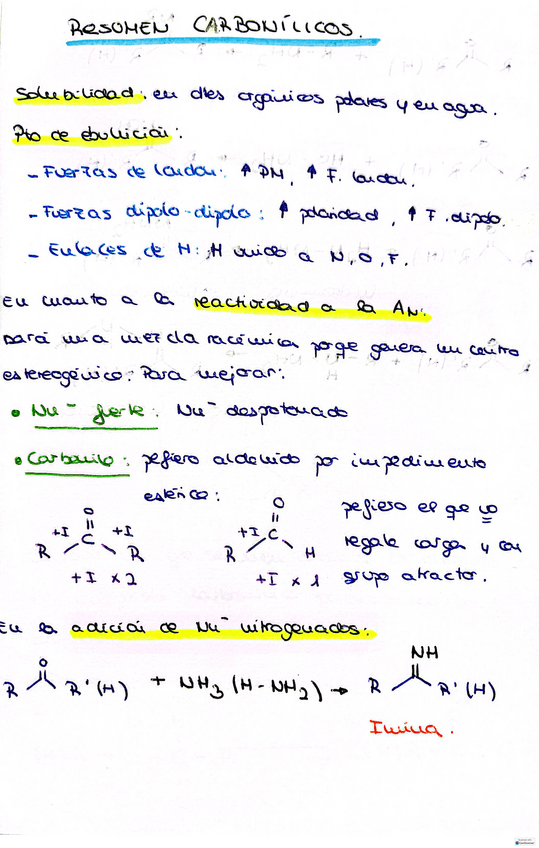 RESUMEN CARBONÍLICOS.
Solubilidad: en dtes orgánicos polares y en agua.
Pto de ebullición:
- Fuerzas de london: ↑ PM, ↑ F. london.
- Fuerzas dipolo-dipolo: ↑ polaridad, ↑ F. dipolo.
- Enlaces de H: H unido a N, O, F.
En cuanto a la reactividad a la AN:
Dará una mezcla racémica porque genera un centro
estereogénico. Para mejorar:
• Nu⁻ fuerte: Nu⁻ desprotonado
• Carbonilo: prefiero aldehido por impedimento
estérico:
prefiero el que no
regale carga y con
grupo atractor.
O
+I C +I
R R
+I x 2
O
+I C
R H
+I x 1
En la adición de Nu⁻ nitrogenados:
O NH
R R'(H) + NH3 (H-NH2) → R R'(H)
Imina.